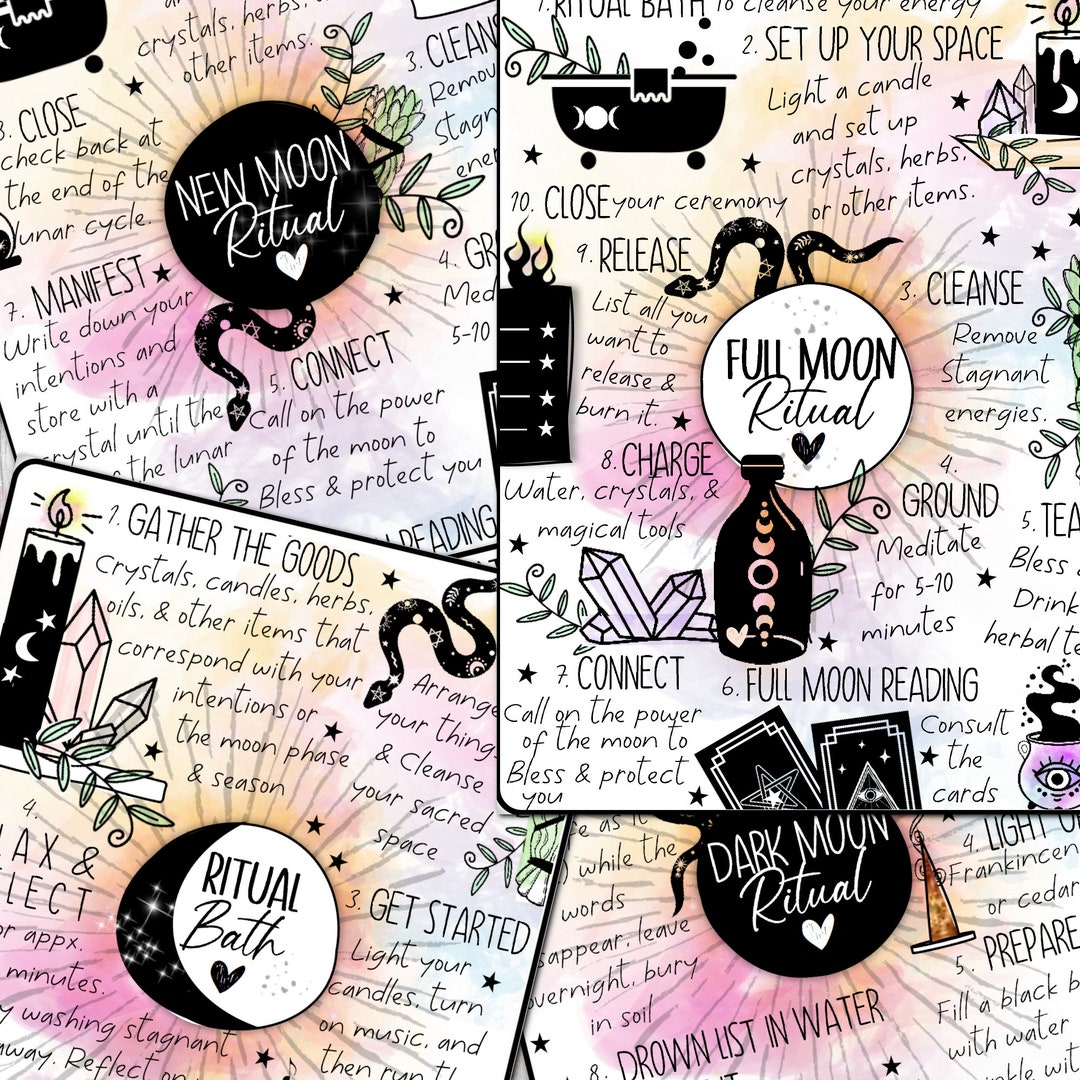 crystals, herbs,
other items.
3. CLEANS
Remov
Stagna
ener
CLOSE
check back at
the end of the
lunar cycle.
NEW MOON
Ritual
4. GR
Med
5-10
7. MANIFEST
Write down your
intentions and
store with a
crystal until the
the lunar
5. CONNECT
Call on the power
of the moon to
Bless & protect you
READING
1. RITUAL BATH to cleanse your energy
2. SET UP YOUR SPACE
Light a candle
and set up
crystals, herbs,
or other items.
10. CLOSE your ceremony
9. RELEASE
List all you
want to
release &
burn it.
FULL MOON
Ritual
3. CLEANSE
Remove
Stagnant
energies.
8. CHARGE
Water, crystals, &
magical tools
4.
GROUND
Meditate
for 5-10
minutes
5. TEA
Bless &
Drink
herbal te
7. CONNECT
Call on the power
of the moon to
Bless & protect
you
6. FULL MOON READING
Consult
the
cards
1. GATHER THE GOODS
Crystals, candles, herbs,
oils, & other items that
correspond with your
intentions or
the moon phase
& season
Arrange
your thing
& Cleanse
your sacred
space
4.
LAX &
FLECT
or appx.
minutes.
y washing stagnant
away. Reflect on
RITUAL
Bath
3. GET STARTED
Light your
candles, turn
on music, and
then run th
as it
while the
words
sappear, leave
overnight, bury
in soil
DARK MOON
Ritual
4. LIGHT
Frankincen
or cedar
5. PREPARE
Fill a black b
with water
8. DROWN LIST IN WATER